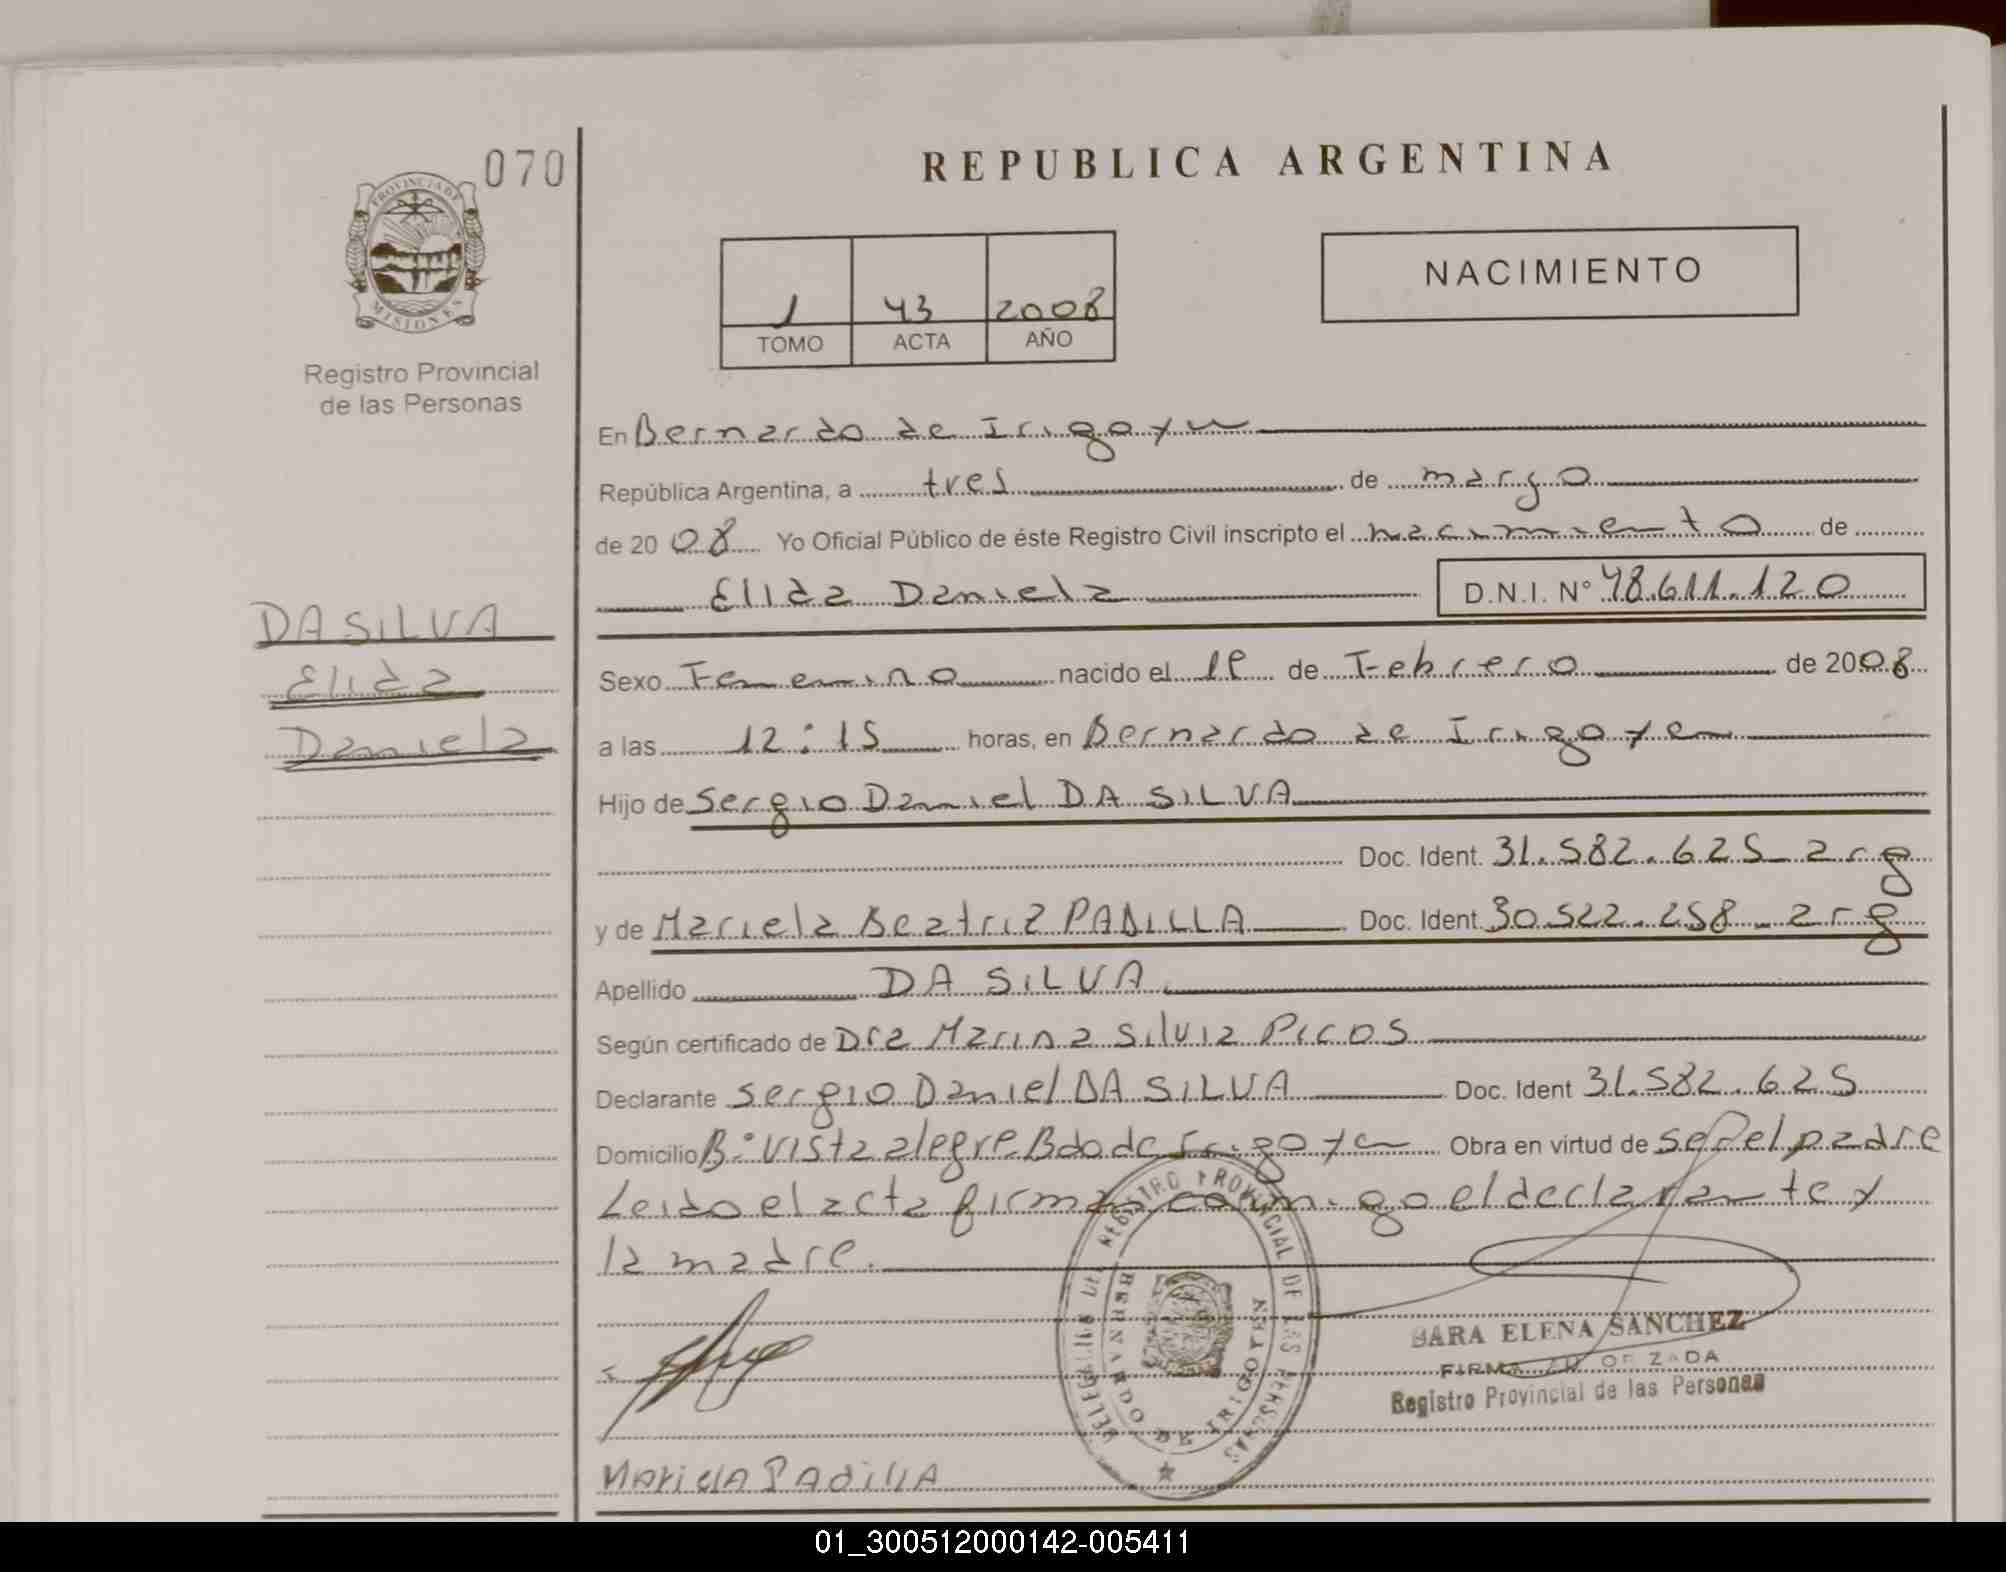 070
PROVINCIA DE
MISIONES
Registro Provincial
de las Personas
REPUBLICA ARGENTINA
1 43 2008
TOMO ACTA AÑO
NACIMIENTO
En Bernardo de Irigoyen
República Argentina, a tres de marzo
de 2008 Yo Oficial Público de éste Registro Civil inscripto el nacimiento de
Elida Daniela D.N.I. Nº 48.611.120
DA SILVA
Elida
Daniela
Sexo Femenino nacido el 1º de Febrero de 2008
a las 12:15 horas, en Bernardo de Irigoyen
Hijo de Sergio Daniel DA SILVA
Doc. Ident. 31.582.625 arg
y de Mariela Beatriz PADILLA Doc. Ident. 30.522.258 - arg
Apellido DA SILVA
Según certificado de Dra Marina Silvia Picos
Declarante Sergio Daniel DA SILVA Doc. Ident 31.582.625
Domicilio Bº Vista alegre Bdo de Irigoyen Obra en virtud de ser el padre
Leido el acta firman conmigo el declarante y
la madre.
DELEGACION DEL REGISTRO PROVINCIAL DE LAS PERSONAS
BERNARDO DE IRIGOYEN
SARA ELENA SANCHEZ
FIRMA AUTORIZADA
Registro Provincial de las Personas
Mariela Padilla
01_300512000142-005411